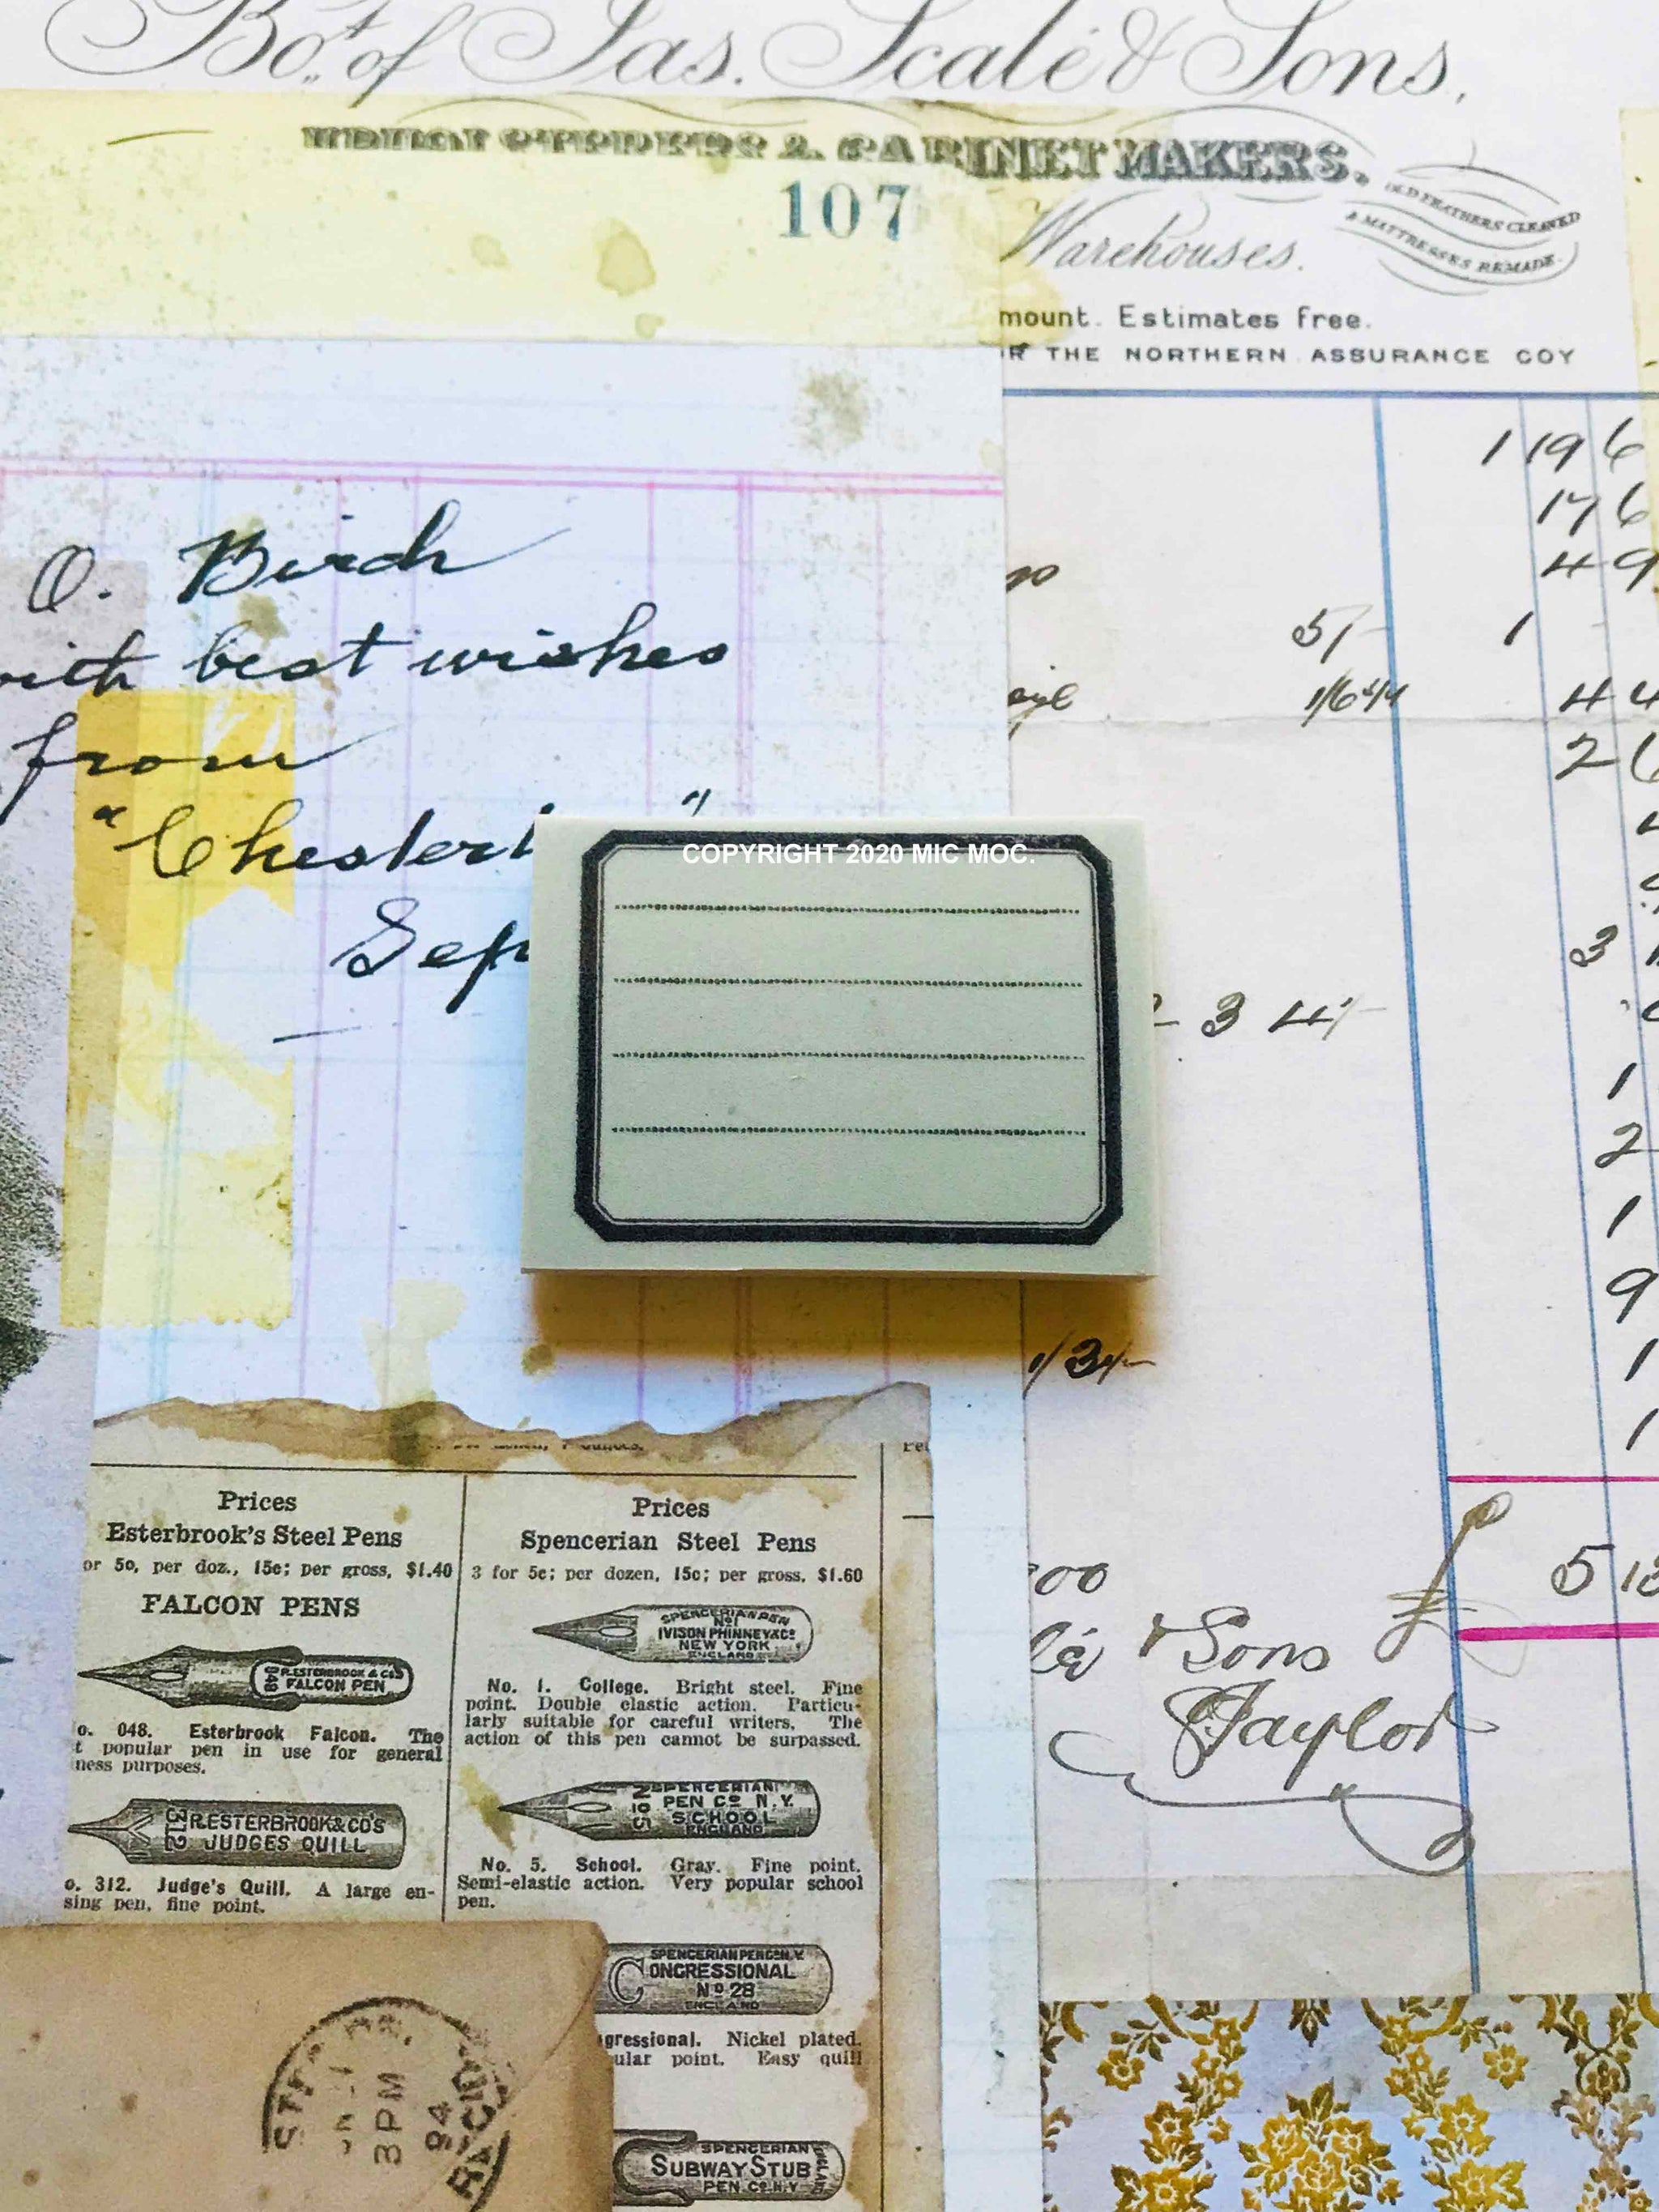 Bot. of Jas. Scalé & Sons,
& CABINET MAKERS.
107
Warehouses.
OLD FEATHERS CLEANED
& MATTRESSES REMADE.
mount. Estimates free.
R THE NORTHERN ASSURANCE COY
1 19 6
17 6
4 9
5/- 1
4 4
2 6
3
3 4/-
1
2
1
9
1
1
1/3
5 18
Sons
Taylor
O. Birch
with best wishes
from
"Chester "
Sep
COPYRIGHT 2020 MIC MOC.
Prices
Esterbrook's Steel Pens
or 5c, per doz., 15c; per gross, $1.40
FALCON PENS
R.ESTERBROOK & CO'S
FALCON PEN
048
o. 048. Esterbrook Falcon. The
t popular pen in use for general
ness purposes.
R.ESTERBROOK&CO'S
312 JUDGES QUILL
o. 312. Judge's Quill. A large en-
sing pen, fine point.
Prices
Spencerian Steel Pens
3 for 5c; per dozen, 15c; per gross, $1.60
SPENCERIAN PEN
No1
IVISON PHINNEY&Co
NEW YORK
ENGLAND
No. 1. College. Bright steel. Fine
point. Double elastic action. Particu-
larly suitable for careful writers. The
action of this pen cannot be surpassed.
SPENCERIAN
PEN Co N.Y.
No5 SCHOOL
ENGLAND
No. 5. School. Gray. Fine point.
Semi-elastic action. Very popular school
pen.
SPENCERIAN PEN Co N.Y.
CONGRESSIONAL
No 28
ENGLAND
gressional. Nickel plated.
ular point. Easy quill
SPENCERIAN
SUBWAY STUB
PEN Co N.Y
ENGLAND
3 PM
94